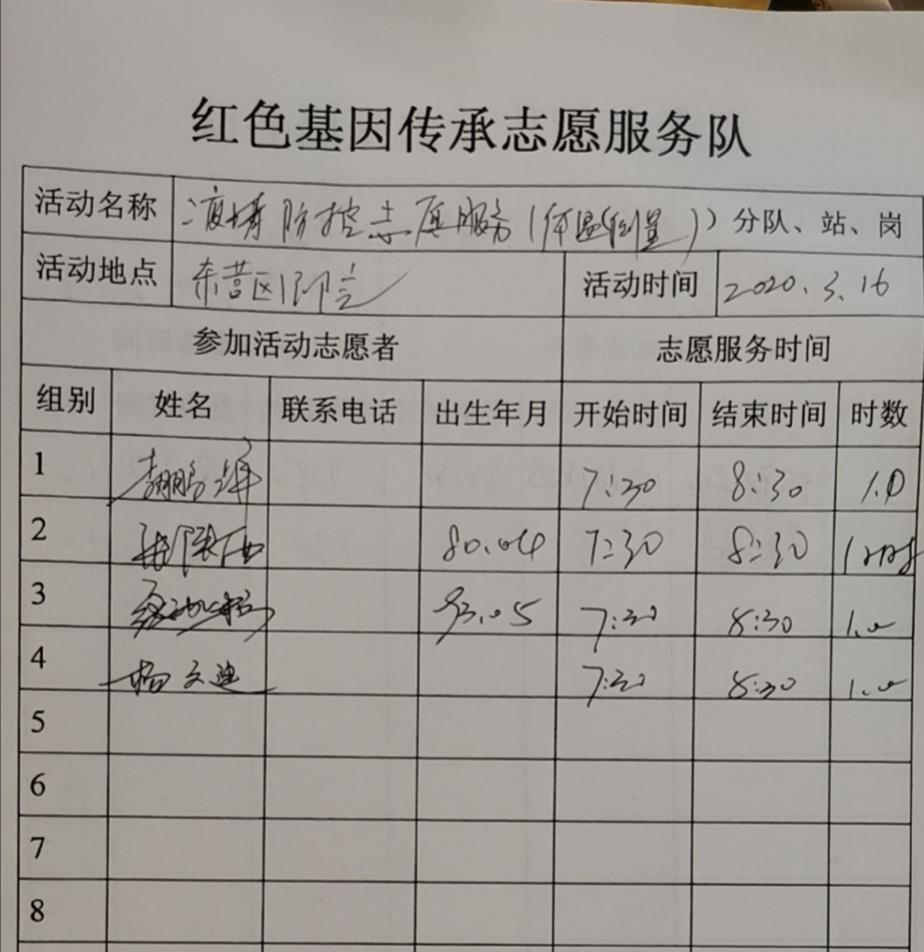 红色基因传承志愿服务队
活动名称 疫情防控志愿服务（体温测量）） 分队、站、岗
活动地点 东营区 活动时间 2020.3.16
参加活动志愿者 志愿服务时间
组别 姓名 联系电话 出生年月 开始时间 结束时间 时数
1 7:30 8:30 1.0
2 80.04 7:30 8:30
3 93.05 7:30 8:30 1.0
4 杨文迪 7:30 8:30 1.0
5
6
7
8